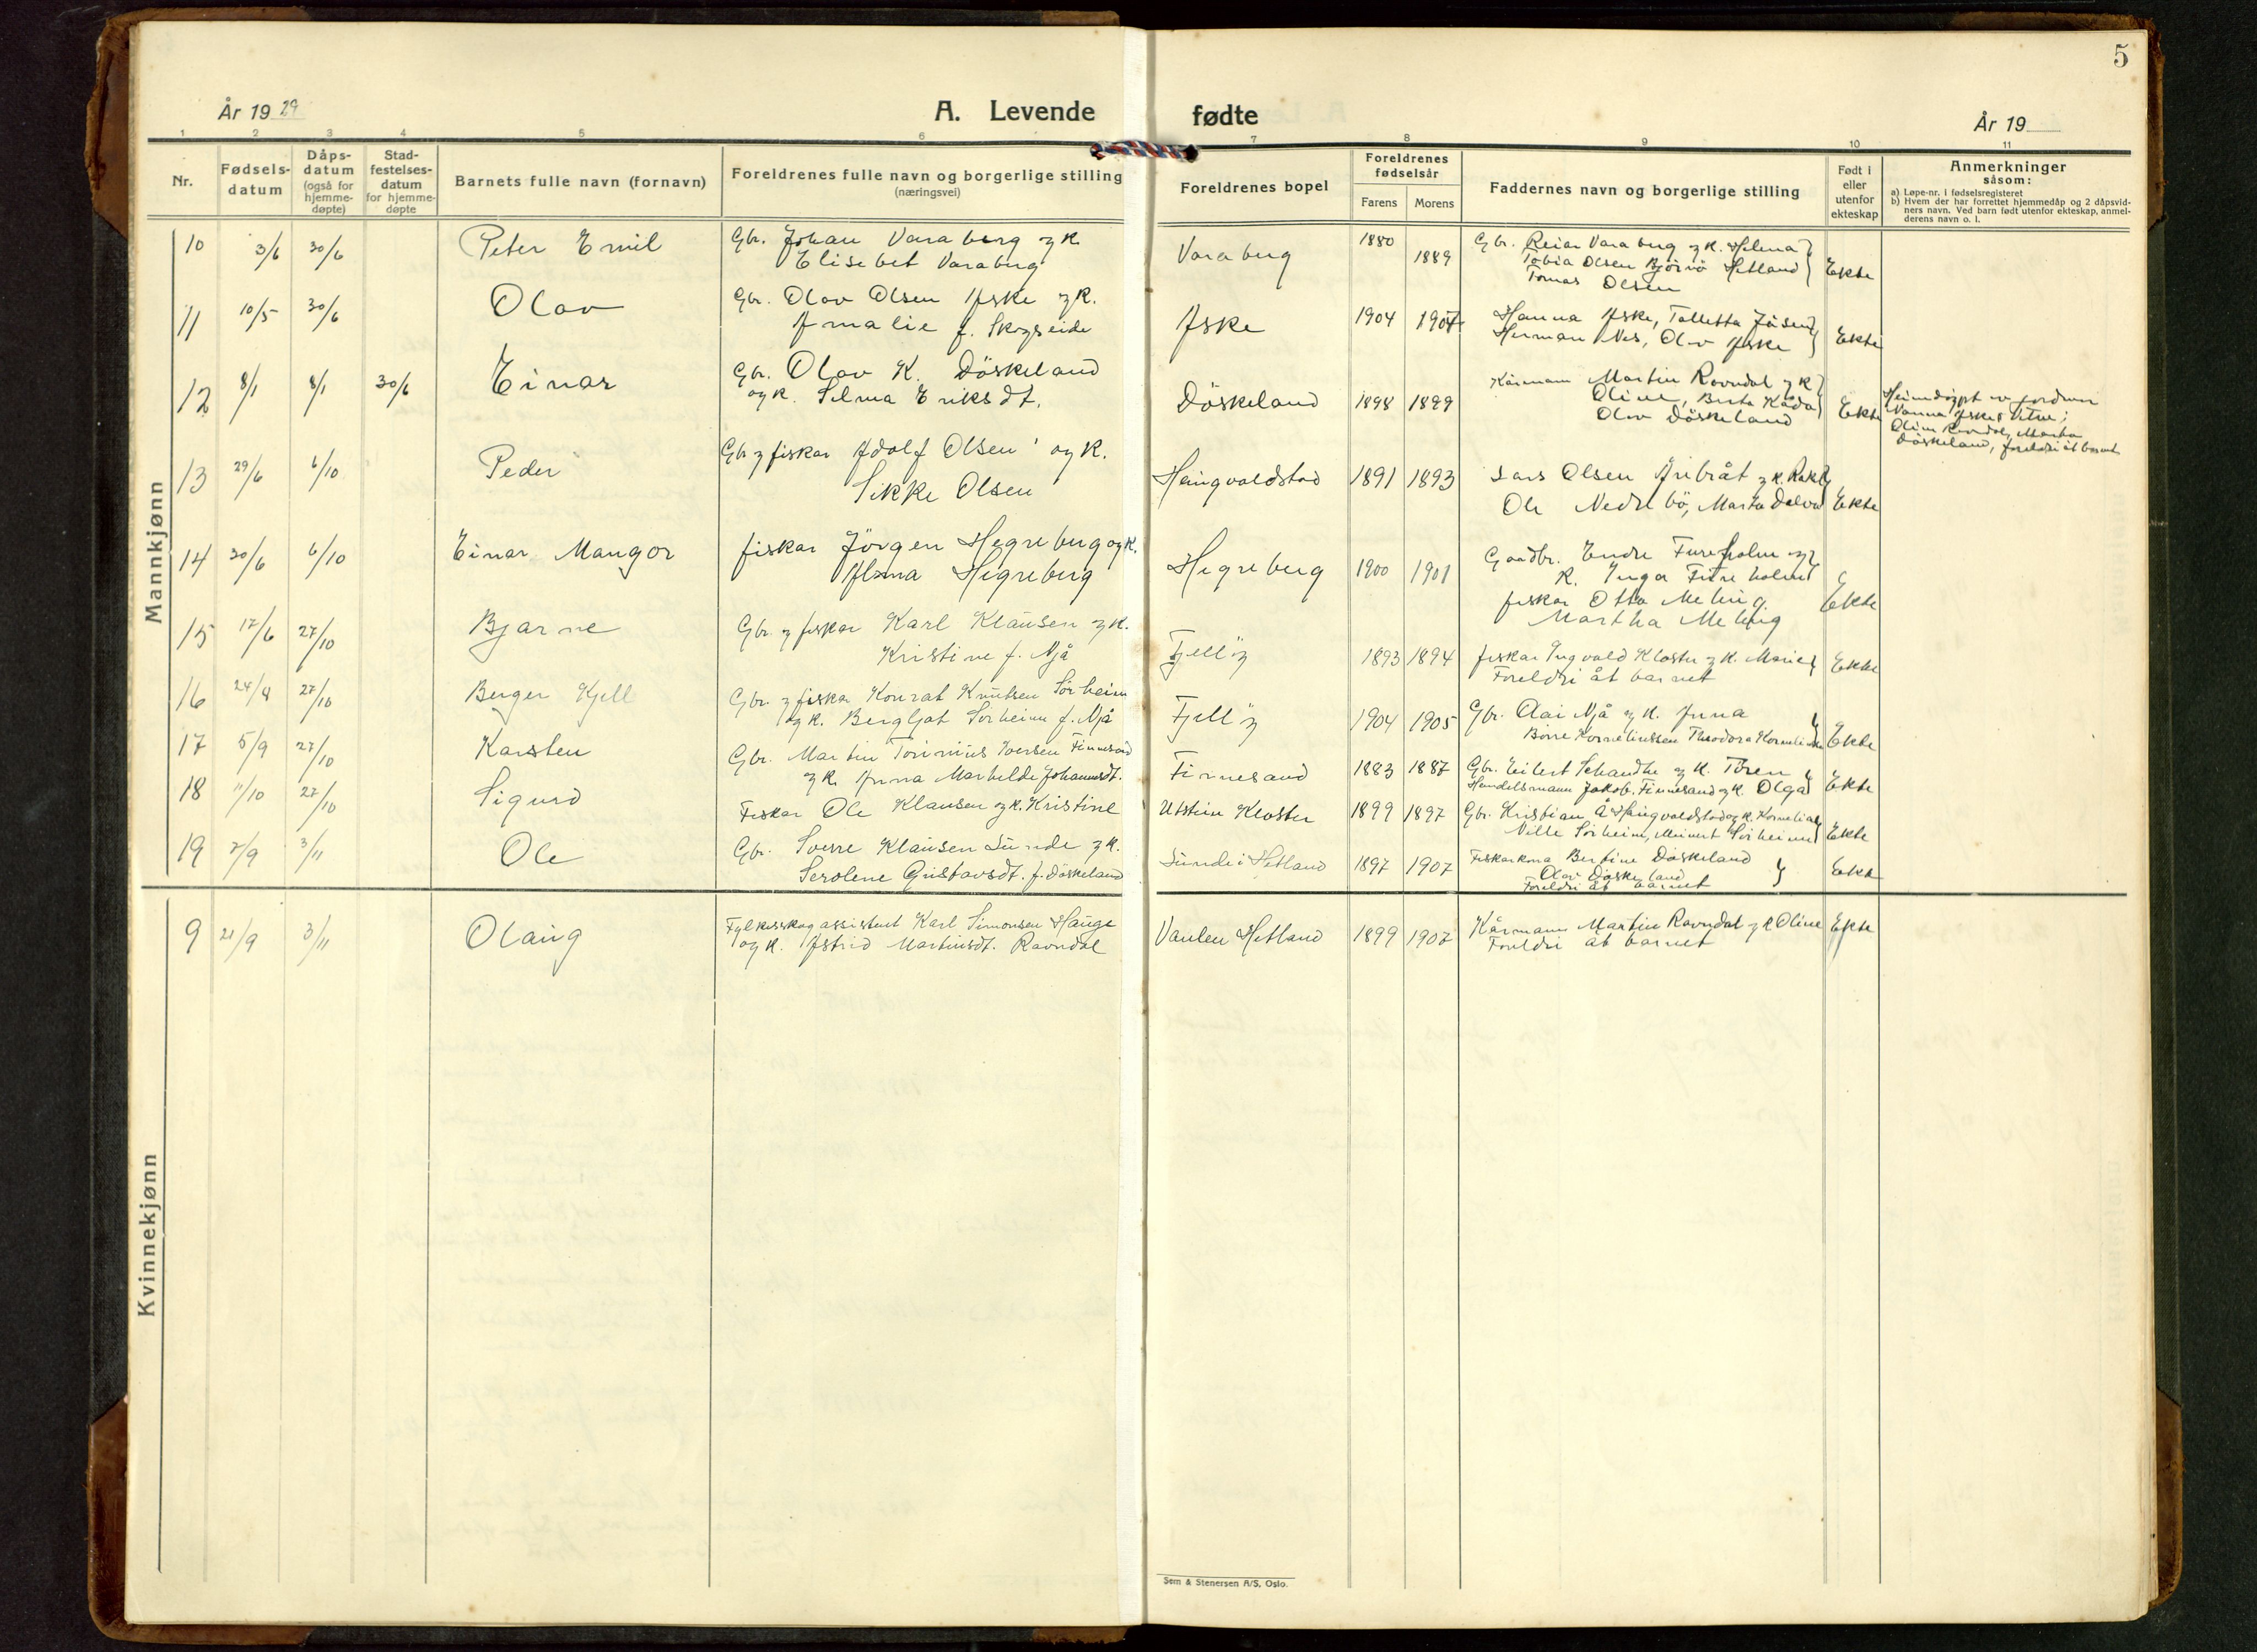 5
År 1929
A. Levende
fødte
År 19
1 2 3 4 5 6 7 8 9 10 11
Nr.
Fødsels-
datum
Dåps-
datum
(også for
hjemme-
døpte)
Stad-
festelses-
datum
for hjemme-
døpte
Barnets fulle navn (fornavn)
Foreldrenes fulle navn og borgerlige stilling
(næringsvei)
Foreldrenes bopel
Foreldrenes
fødselsår
Farens Morens
Faddernes navn og borgerlige stilling
Født i
eller
utenfor
ekteskap
Anmerkninger
såsom:
a) Løpe-nr. i fødselsregisteret
b) Hvem der har forrettet hjemmedåp og 2 dåpsvid-
ners navn. Ved barn født utenfor ekteskap, anmel-
derens navn o. l.
Mannkjønn
10 3/6 30/6 Peter Emil
Gbr. Johan Varaberg og k.
Elisebet Varaberg
Varaberg 1880 1889
Gbr. Reiar Varaberg og k. Helena
Tobia Olsen Hetland
Tomas Olsen
Ekte
11 10/5 30/6 Olav
Gbr. Olav Olsen Aske og k.
Amalie f. Skogseide
Aske 1904 1907
Hanna Aske, Talletta
Herman Nes, Olav Aske
Ekte
12 8/1 8/1 30/6 Einar
Gbr. Olav K. Döskeland
og k. Selma Eriksdt.
Döskeland 1898 1899
Kårmann Martin Ravndal og k
Oline, Berta Kåda
Olav Döskeland
Ekte
Heimdöypt av jordmor
Nanna Aske, Vitne:
Oline Ravndal, Marta
Döskeland, foreldri åt barnet
13 29/6 6/10 Peder
Gbr og fiskar Adolf Olsen og k.
Sikke Olsen
Haugvaldstad 1891 1893
Lars Olsen og k. Rakel
Ole Nedrebö, Marta Dalva
Ekte
14 30/6 6/10 Einar Mangor
fiskar Jörgen Hegreberg og k.
Alma Hegreberg
Hegreberg 1900 1901
Gardbr. Endre Fureholm og
k. Inga Fureholm
fiskar Otto Meling
Martha Meling
Ekte
15 17/6 27/10 Bjarne
Gbr. og fiskar Karl Klausen og k.
Kristine f. Njå
Fjellöy 1893 1894
fiskar Ingvald Kloster og k. Marie
Foreldri åt barnet
Ekte
16 24/8 27/10 Berger Kjell
Gbr. og fiskar Konrat Knutsen Sörheim
og k. Bergljot Sörheim f. Njå
Fjellöy 1904 1905
Gbr. Njå og k. Anna
Korneliussen Theodora
Ekte
17 5/9 27/10 Karsten
Gbr. Martin Torinius Iversen Finnesand
og k. Anna Marhilde Johannesdt.
Finnesand 1883 1887
Gbr. Eilert Schandhe og k. Tören
Handelsmann Jakob Finnesand og k. Olga
Ekte
18 11/10 27/10 Sigurd
Fiskar Ole Klausen og k. Kristine
Utstein Kloster 1899 1897
Gbr. Kristian Å Haugvaldstad og k. Kornelia
Nille Sörheim, Meinert Sörheim
Ekte
19 7/9 3/11 Ole
Gbr. Sverre Klausen Sunde og k.
Serolene Gustavsdt. f. Döskeland
Sunde i Hetland 1897 1907
Fiskarkona Bertine Döskeland
Olav Döskeland
Foreldri åt barnet
Ekte
Kvinnekjønn
9 21/9 3/11 Olaug
Fylkesskogassistent Karl Simonsen Hauge
og k. Astrid Martinsdt. Ravndal
Vaulen Hetland 1899 1907
Kårmann Martin Ravndal og k Oline
Foreldri åt barnet
Ekte
Sem & Stenersen A/S, Oslo.